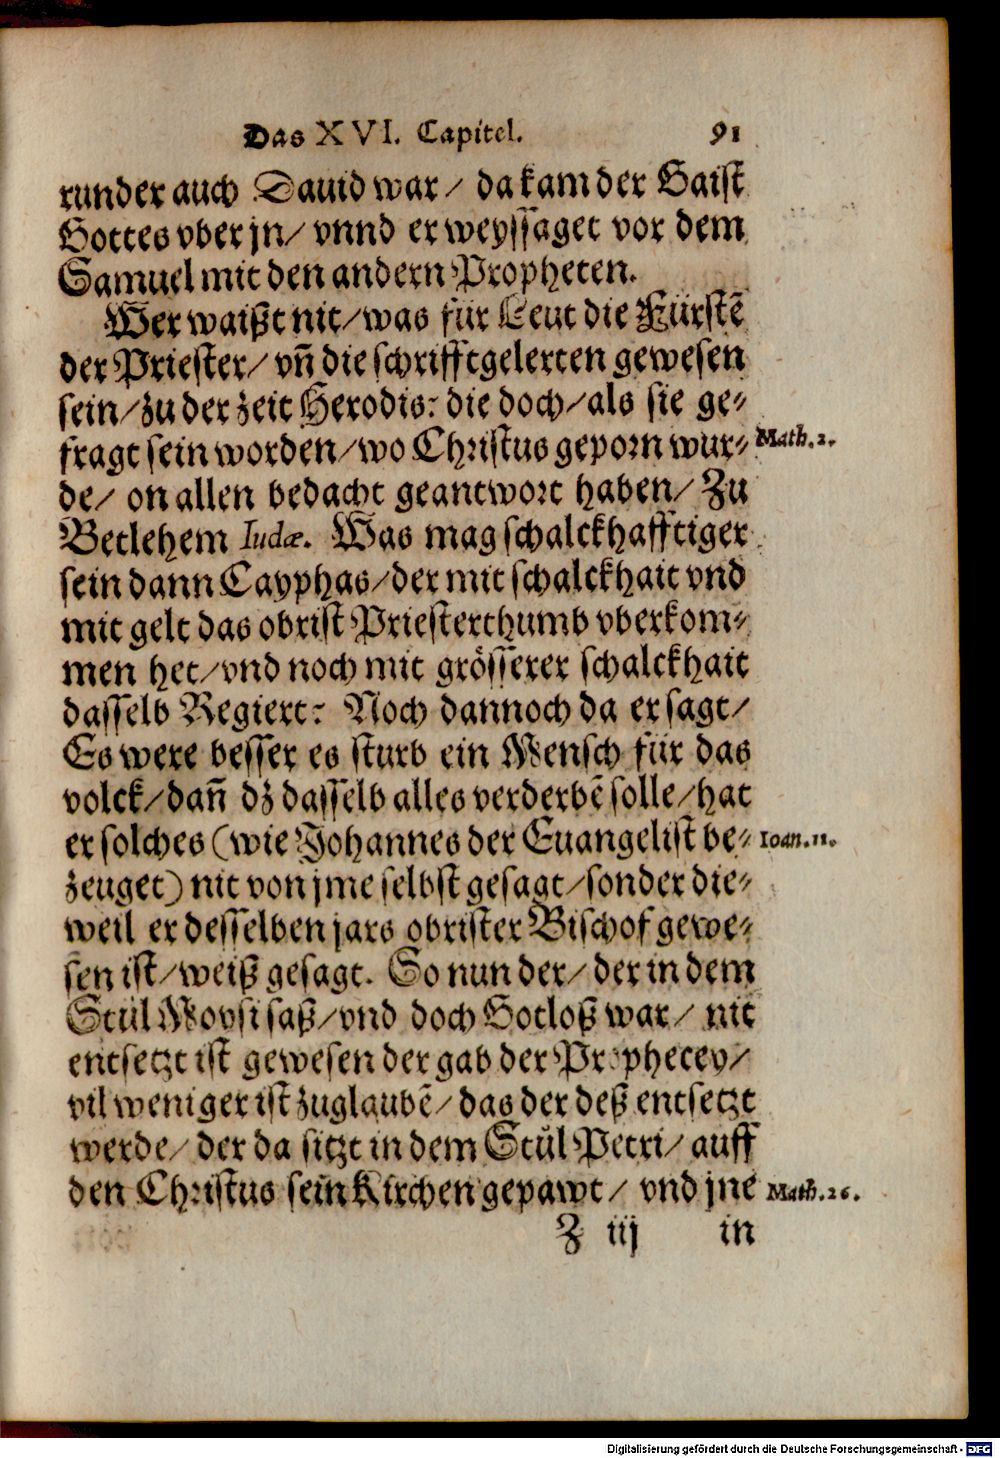 Das XVI. Capitel. 91
runder auch Dauid war/ da kam der Gaist
Gottes vber jn/ vnnd er weyssaget vor dem
Samuel mit den andern Propheten.
Wer waißt nit/ was für Leut die Fürstẽ
der Priester/ vñ die schrifftgelerten gewesen
sein/ zu der zeit Herodis: die doch/ als sie ge-
fragt sein worden/ wo Christus geporn wur- Math. 2.
de/ on allen bedacht geantwort haben/ Zu
Betlehem Iudæ. Was mag schalckhafftiger
sein dann Cayphas/ der mit schalckhait vnd
mit gelt das obrist Priesterthumb vberkom-
men het/ vnd noch mit grösserer schalckhait
dasselb Regiert: Noch dannoch da er sagt/
Es were besser es sturb ein Mensch für das
volck/ dañ dz dasselb alles verderbẽ solle/ hat
er solches (wie Johannes der Euangelist be- Ioan. 11.
zeuget) nit von jme selbst gesagt/ sonder die-
weil er desselben jars obrister Bischof gewe-
sen ist/ weiß gesagt. So nun der/ der in dem
Stůl Moysi saß/ vnd doch Gotloß war/ nit
entsetzt ist gewesen der gab der Prophecey/
vil weniger ist zuglaubẽ/ das der deß entsetzt
werde/ der da sitzt in dem Stůl Petri/ auff
den Christus sein Kirchen gepawt/ vnd jne Math. 26.
Z iij in
Digitalisierung gefördert durch die Deutsche Forschungsgemeinschaft - DFG